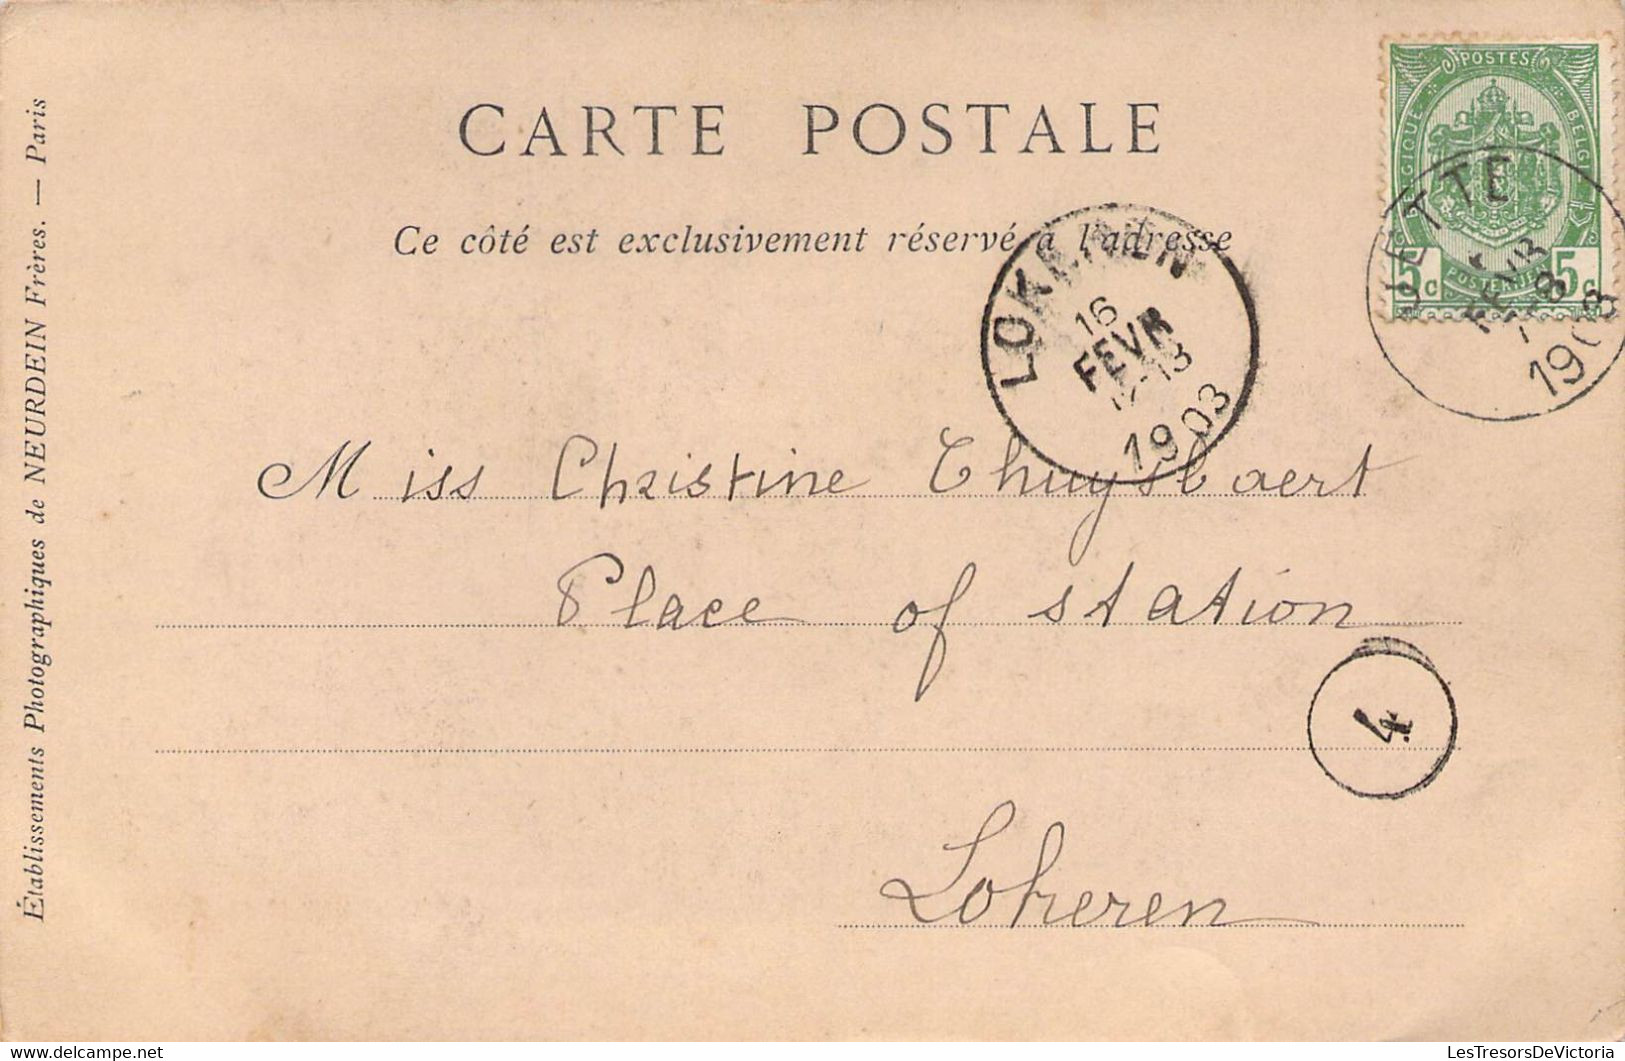 CARTE POSTALE
Ce côté est exclusivement réservé à l'adresse
Établissements Photographiques de NEURDEIN Frères. — Paris
POSTES
BELGIQUE
BELGIË
5c POSTERIJEN 5c
JETTE
FEVR
LOKEREN
16
FEVR
1903
Miss Christine Thuysbaert
Place of station
4
Lokeren
LesTresorsDeVictoria